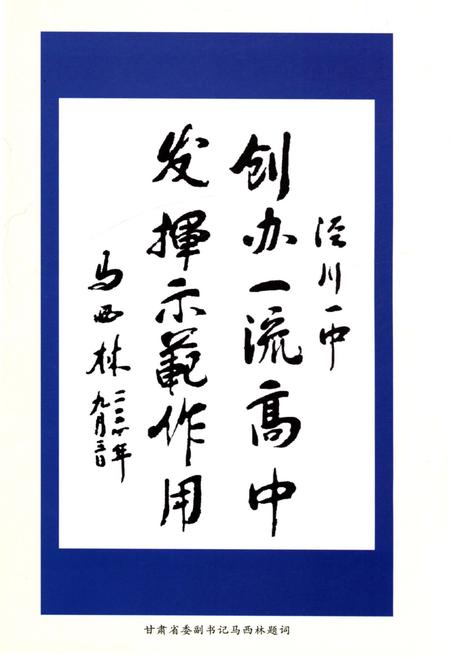 泾川一中
创办一流高中
发挥示範作用
马西林
二〇〇六年
九月三日
甘肃省委副书记马西林题词